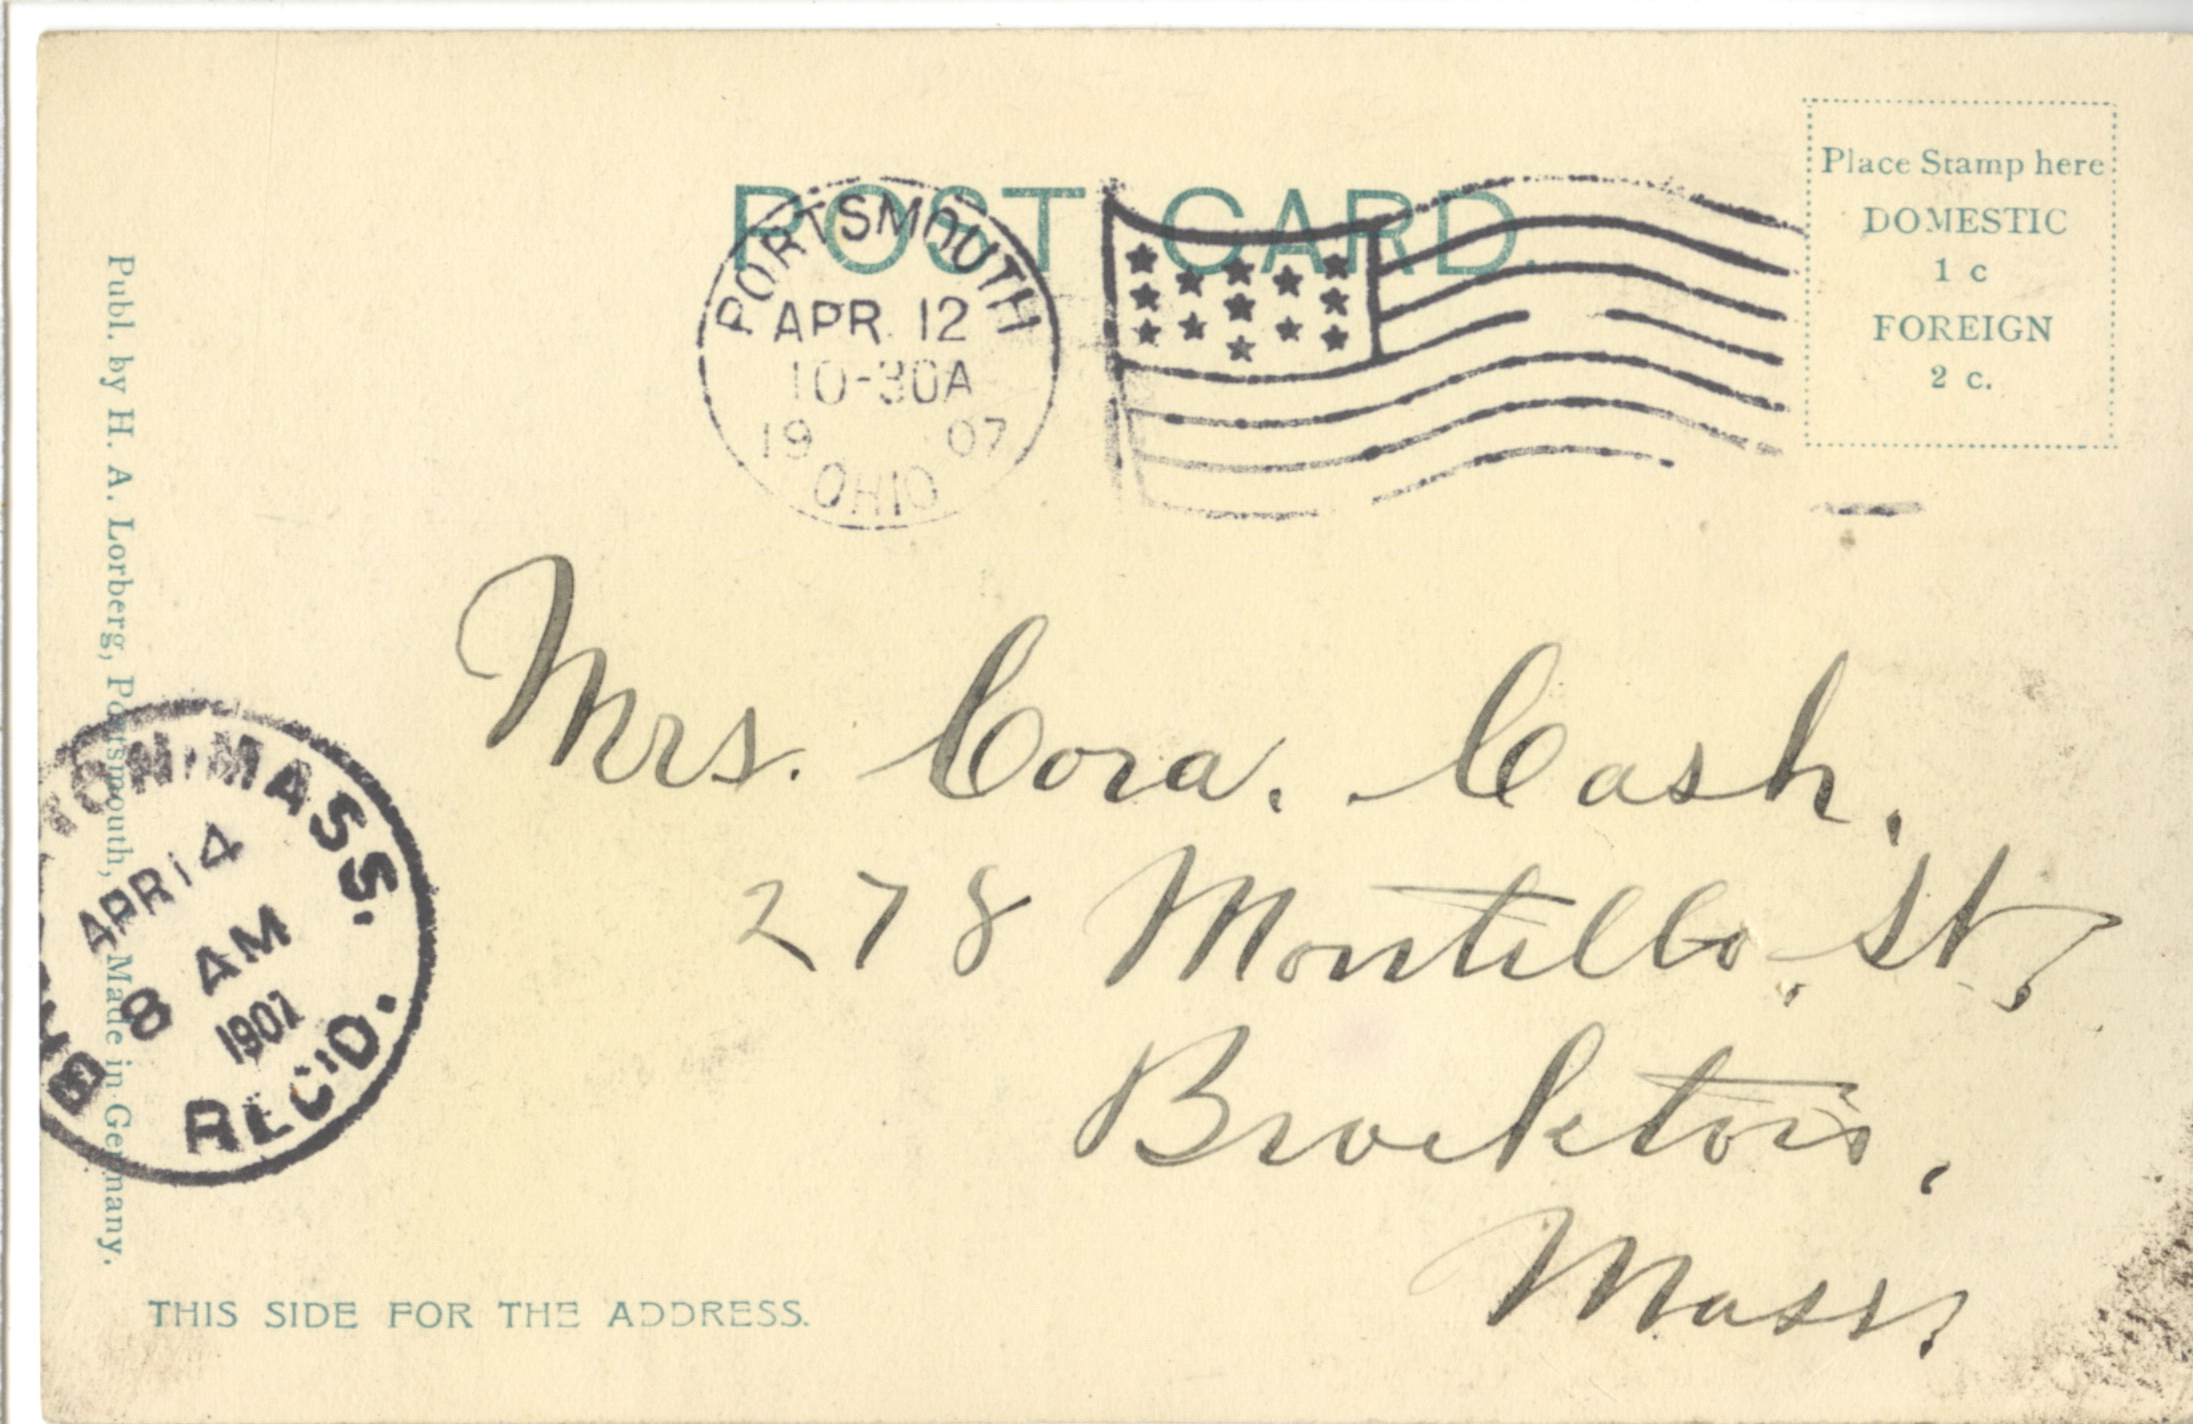 POST CARD.
PORTSMOUTH
APR 12
10-30A
19 07
OHIO
Place Stamp here
DOMESTIC
1 c
FOREIGN
2 c.
Publ. by H. A. Lorberg, Portsmouth, O. Made in Germany.
Mrs. Cora. Cash,
278 Montello, St,
Brockton,
Mass,
TON, MASS.
APR 14
8 AM
1907
REC'D.
THIS SIDE FOR THE ADDRESS.